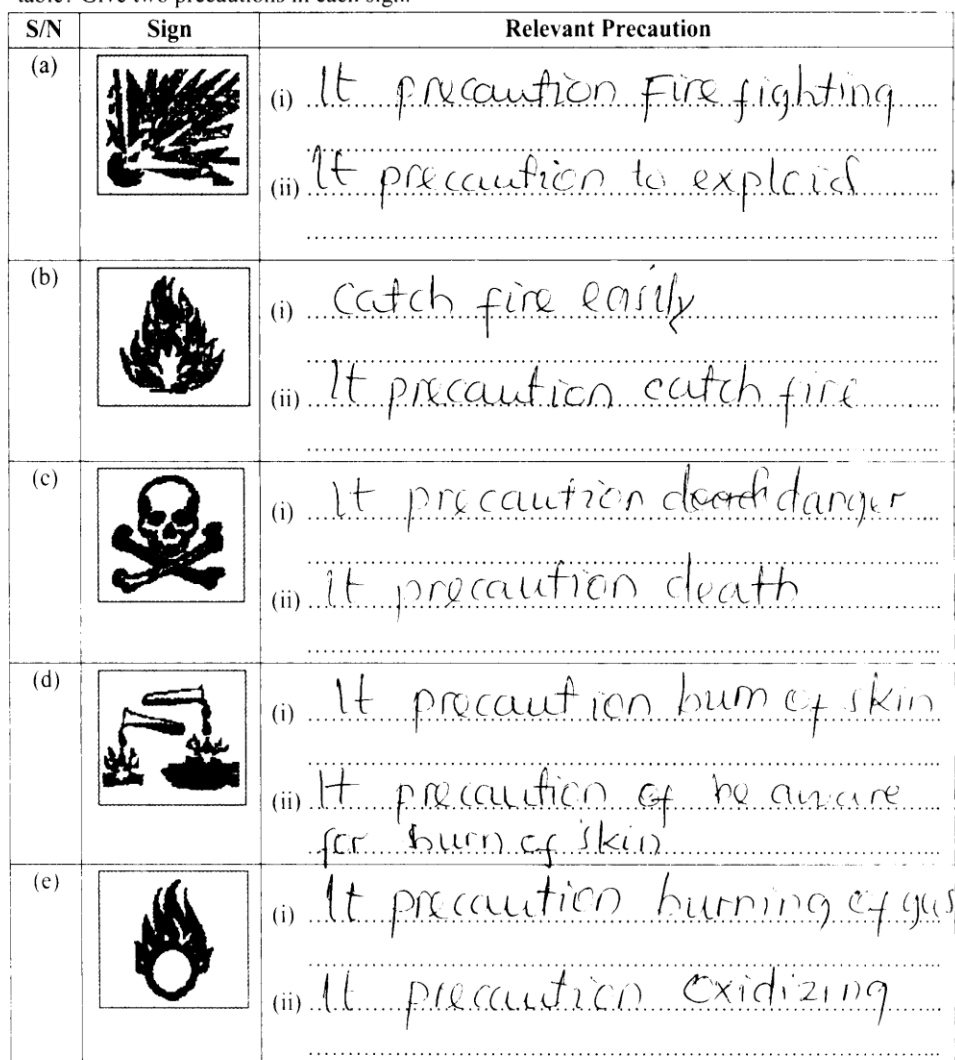 table? Give two precautions in each sign.
S/N Sign Relevant Precaution
(a)
(i) It precaution Fire fighting
(ii) It precaution to exploid
(b)
(i) Catch fire easily
(ii) It precaution catch fire
(c)
(i) It precaution danger
(ii) It precaution death
(d)
(i) It precaution burn of skin
(ii) It precaution of be aware
for burn of skin
(e)
(i) It precaution burning of gas
(ii) It precaution Oxidizing